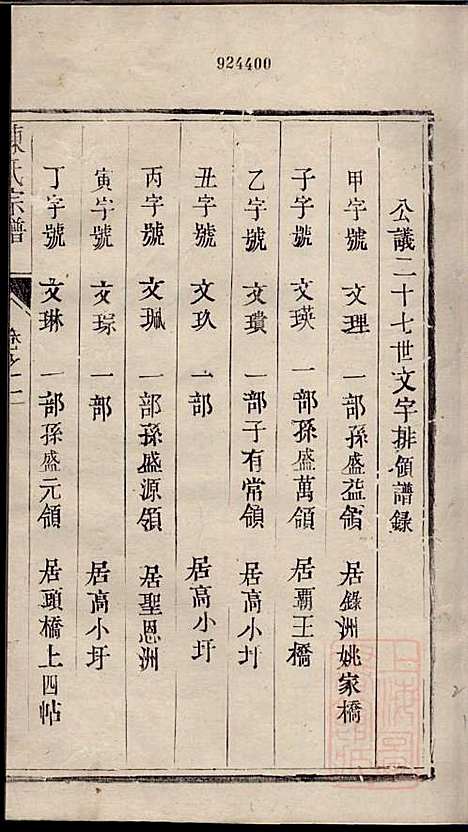 924400
公議二十七世文字排領譜錄
甲字號 文理 一部孫盛益領 居錄洲姚家橋
子字號 文瑛 一部孫盛萬領 居霸王橋
乙字號 文璝 一部子有常領 居高小圩
丑字號 文玖 一部 居高小圩
丙字號 文珮 一部孫盛源領 居聖恩洲
寅字號 文琮 一部 居高小圩
丁字號 文琳 一部孫盛元領 居頭橋上四帖
陳氏宗譜 卷之二